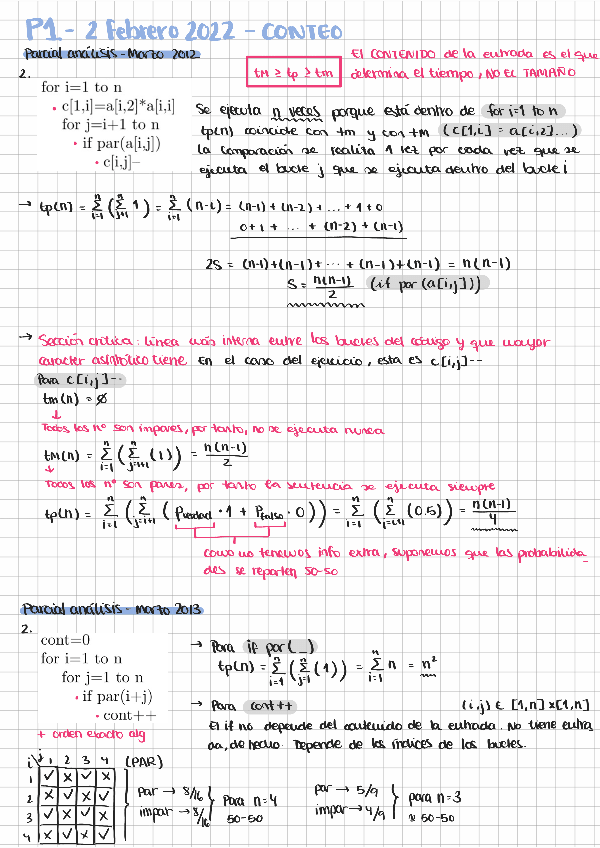 P1.- 2 Febrero 2022 - CONTEO
Parcial análisis - Marzo 2012
tM ≥ tp ≥ tm
El CONTENIDO de la entrada es el que
determina el tiempo, NO EL TAMAÑO
2.
for i=1 to n
• c[1,i]=a[i,2]*a[i,i]
for j=i+1 to n
• if par(a[i,j])
• c[i,j]–
Se ejecuta n veces porque está dentro de for i=1 to n
tp(n) coincide con tm y con tM (c[1,i] = a[i,2]...)
La comparación se realiza 1 vez por cada vez que se
ejecuta el bucle j que se ejecuta dentro del bucle i
→ tp(n) = Σ_{i=1}^{n} (Σ_{j+1}^{n} 1) = Σ_{i=1}^{n} (n-i) = (n-1) + (n-2) + ... + 1 + 0
0 + 1 + ... + (n-2) + (n-1)
2S = (n-1)+(n-1)+ ... + (n-1)+(n-1) = n(n-1)
S = n(n-1)/2 (if par(a[i,j]))
→ Sección crítica: línea más interna entre los bucles del código y que mayor
caracter asintótico tiene. En el caso del ejercicio, esta es c[i,j]--
Para c[i,j]--
tm(n) = ∅
↓
Todos los nº son impares, por tanto, no se ejecuta nunca
tM(n) = Σ_{i=1}^{n} (Σ_{j=i+1}^{n} (1)) = n(n-1)/2
↓
Todos los nº son pares, por tanto la sentencia se ejecuta siempre
tp(n) = Σ_{i=1}^{n} (Σ_{j=i+1}^{n} (Pverdad · 1 + Pfalso · 0)) = Σ_{i=1}^{n} (Σ_{j=i+1}^{n} (0.5)) = n(n-1)/4
como no tenemos info extra, suponemos que las probabilida_
des se reparten 50-50
Parcial análisis - Marzo 2013
2.
cont=0
for i=1 to n
for j=1 to n
• if par(i+j)
• cont++
+ orden exacto alg
→ Para if par(_)
tp(n) = Σ_{i=1}^{n} (Σ_{j=1}^{n} (1)) = Σ_{i=1}^{n} n = n²
→ Para cont++ (i,j) ∈ [1,n]x[1,n]
El if no depende del contenido de la entrada. No tiene entra
da, de hecho. Depende de los índices de los bucles.
i\j 1 2 3 4 (PAR)
1 ✓ x ✓ x
2 x ✓ x ✓
3 ✓ x ✓ x
4 x ✓ x ✓
par → 8/16
impar → 8/16
Para n=4
50-50
par → 5/9
impar → 4/9
para n=3
≈ 50-50